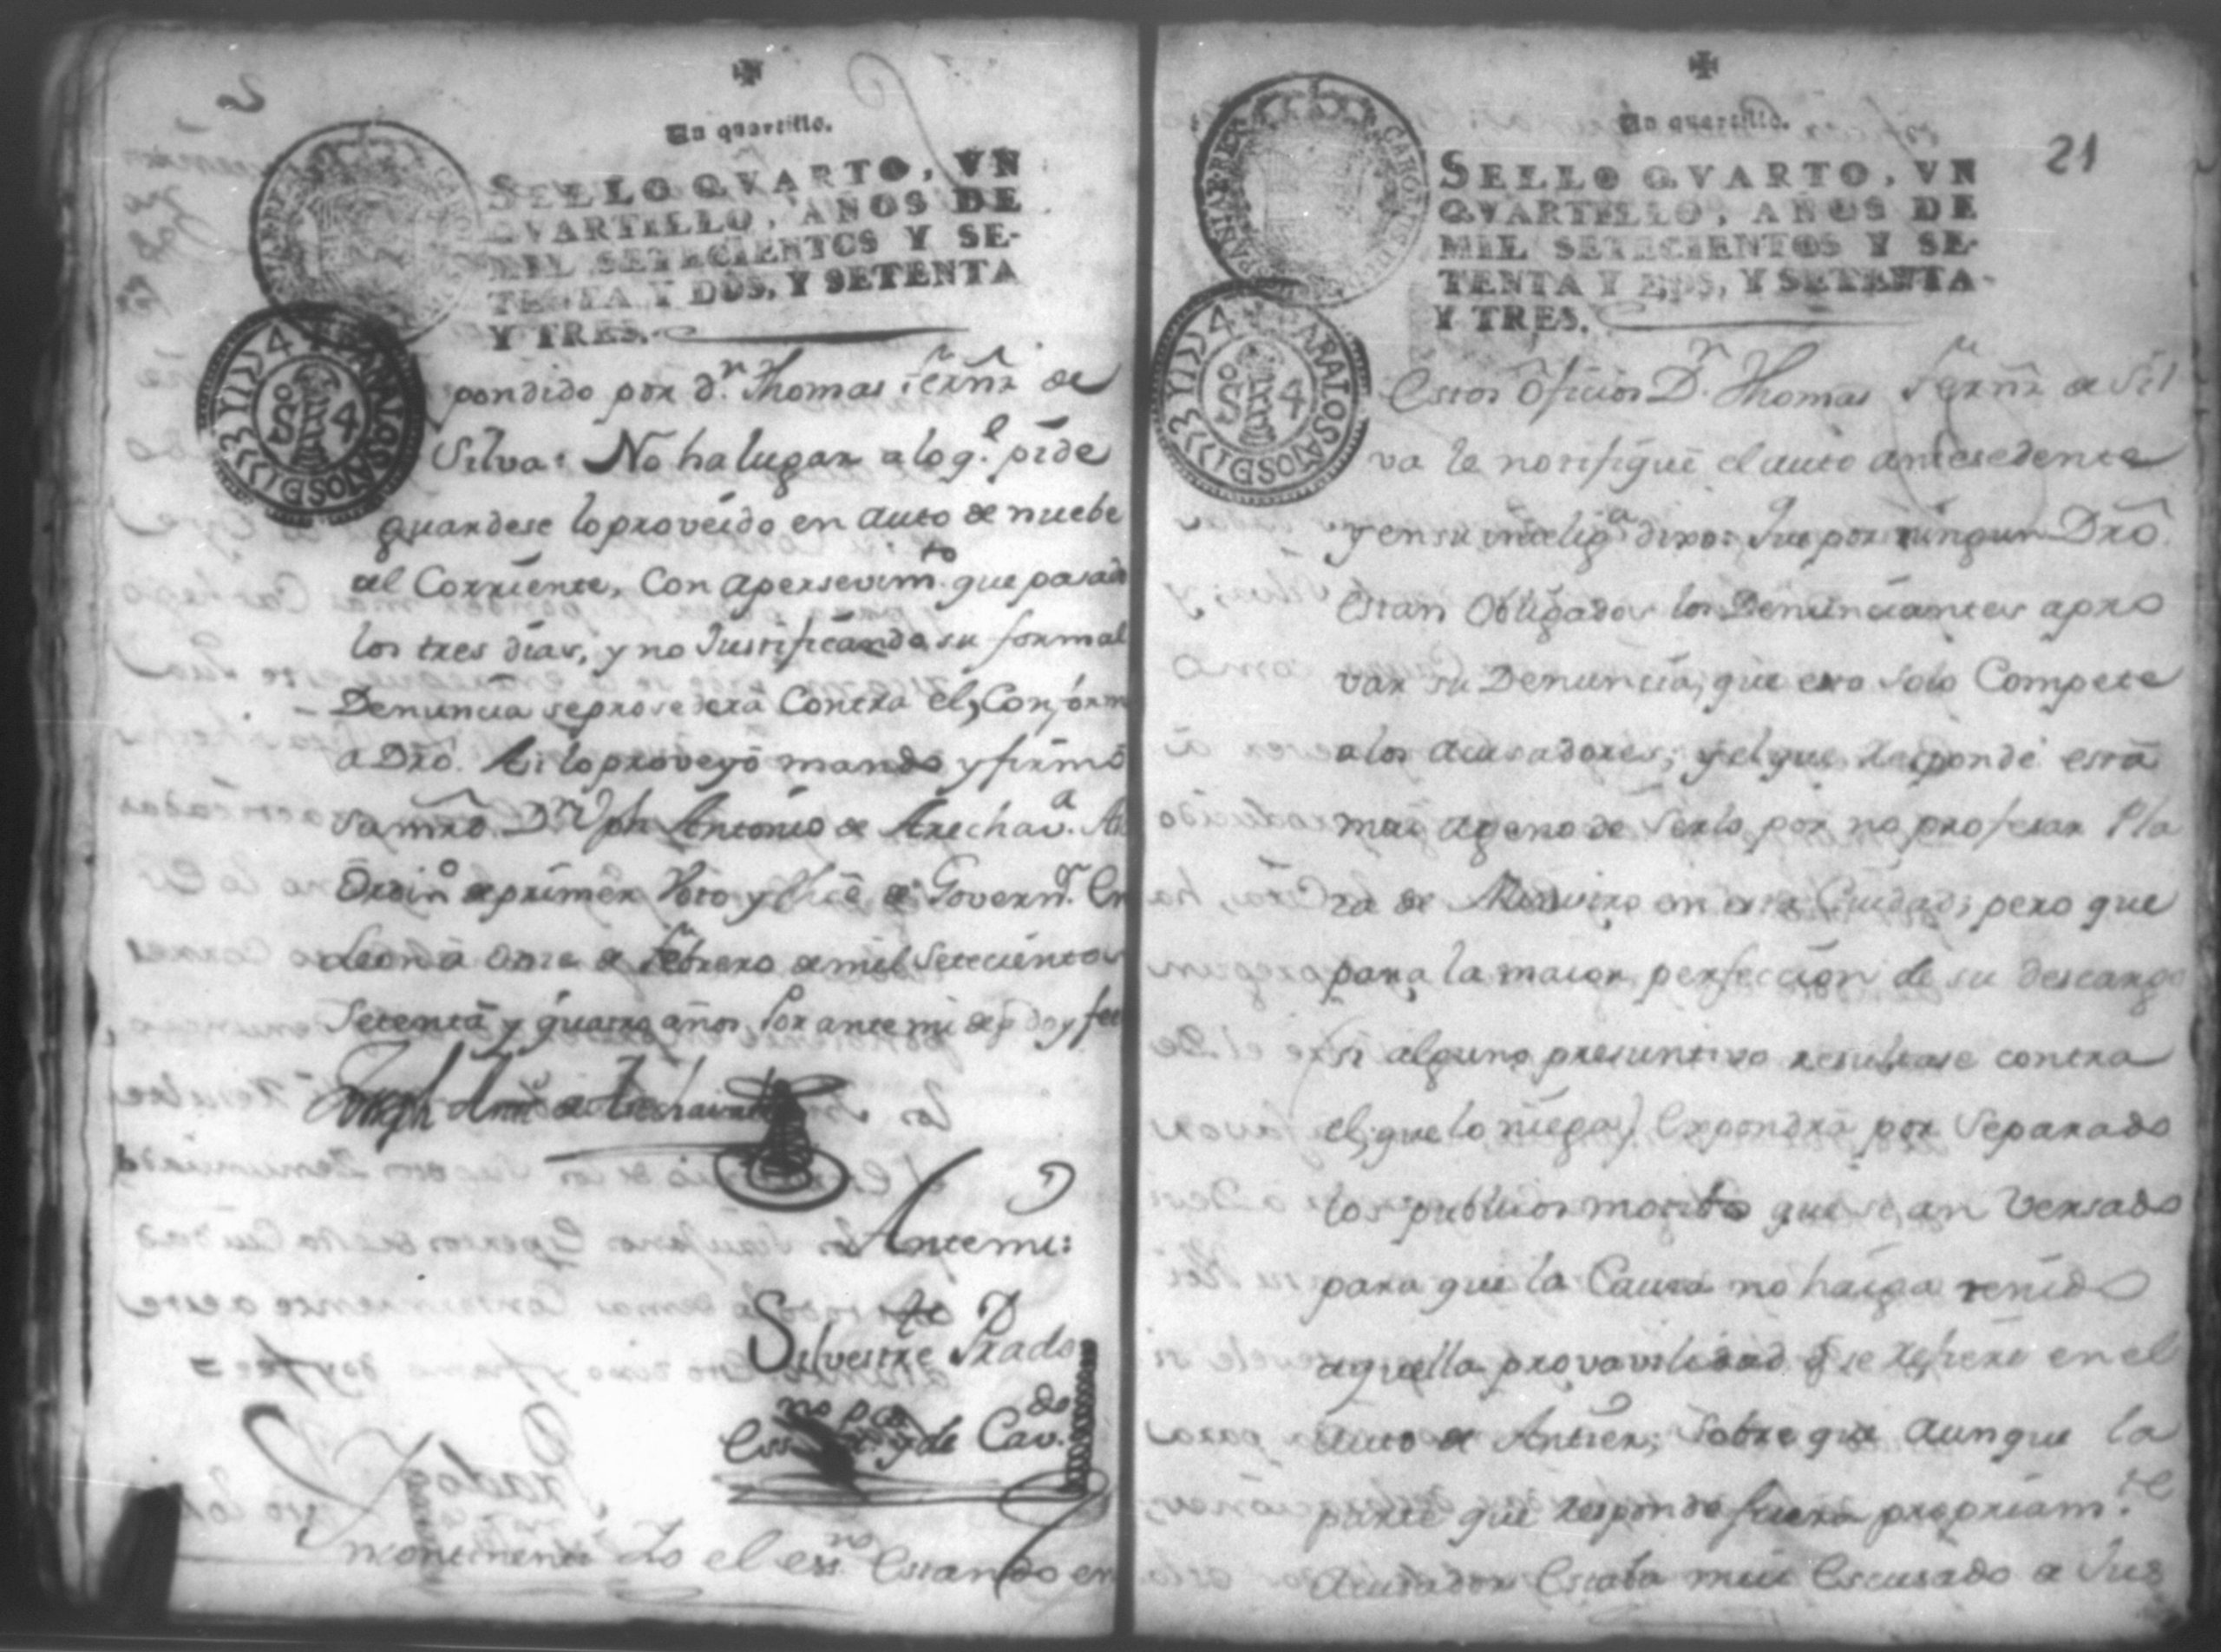 Un quartillo.
SELLO QVARTO, VN
QVARTILLO, AÑOS DE
MIL SETECIENTOS Y SE-
TENTA Y DOS, Y SETENTA
Y TRES.
pondido por dn. Thomas Fernz de
Silva: No ha lugar a lo q.e pide
guardese lo proveido en auto de nuebe
del Corriente, Con apersevimto. que pasado
los tres dias, y no Justificando su formal
Denuncia se prosedera Contra el, Conform
a Dro. Asi lo proveyó mandó y firmó
su mrd. Dn. Jph Antonio de Arechava. Al
Ordino. de primer Voto y The de Governr. En
Leon á onze de Febrero de mil Setecientos
Setenta y quatro años, Por ante mi de q doy fee
Joseph Antto de Arechavala
Ante mi:
Silvestre Prado
no pco do
Ess. y de Cav.
ncontinenti Yo el essno. Estando en
Un quartillo.
21
SELLO QVARTO, VN
QVARTILLO, AÑOS DE
MIL SETECIENTOS Y SE-
TENTA Y DOS, Y SETENTA
Y TRES.
Estos Oficios Dn. Thomas Fernz de Sil
va le notifiqué el auto antesedente
y en su inteliga. dixo: Que por ningun Dro
Estan Obligados los Denunciantes a pro
var su Denuncia, que eso solo Compete
a los acusadores; y el que responde está
mui ageno de Serlo, por no profesar Pla
za de Ministro en esta Ciudad; pero que
para la maior perfeccion de su descargo
(si alguno presuntivo resultase contra
el, que lo niega) Expondrá por Separado
los publicos motibos que se an Versado
para que la Causa no haiga tenido
aquella provavilidad q se refiere en el
auto de Antier; Sobre que aunque la
parte que responde fuera propriam.te
Acusador Estaba mui Escusado a Jus